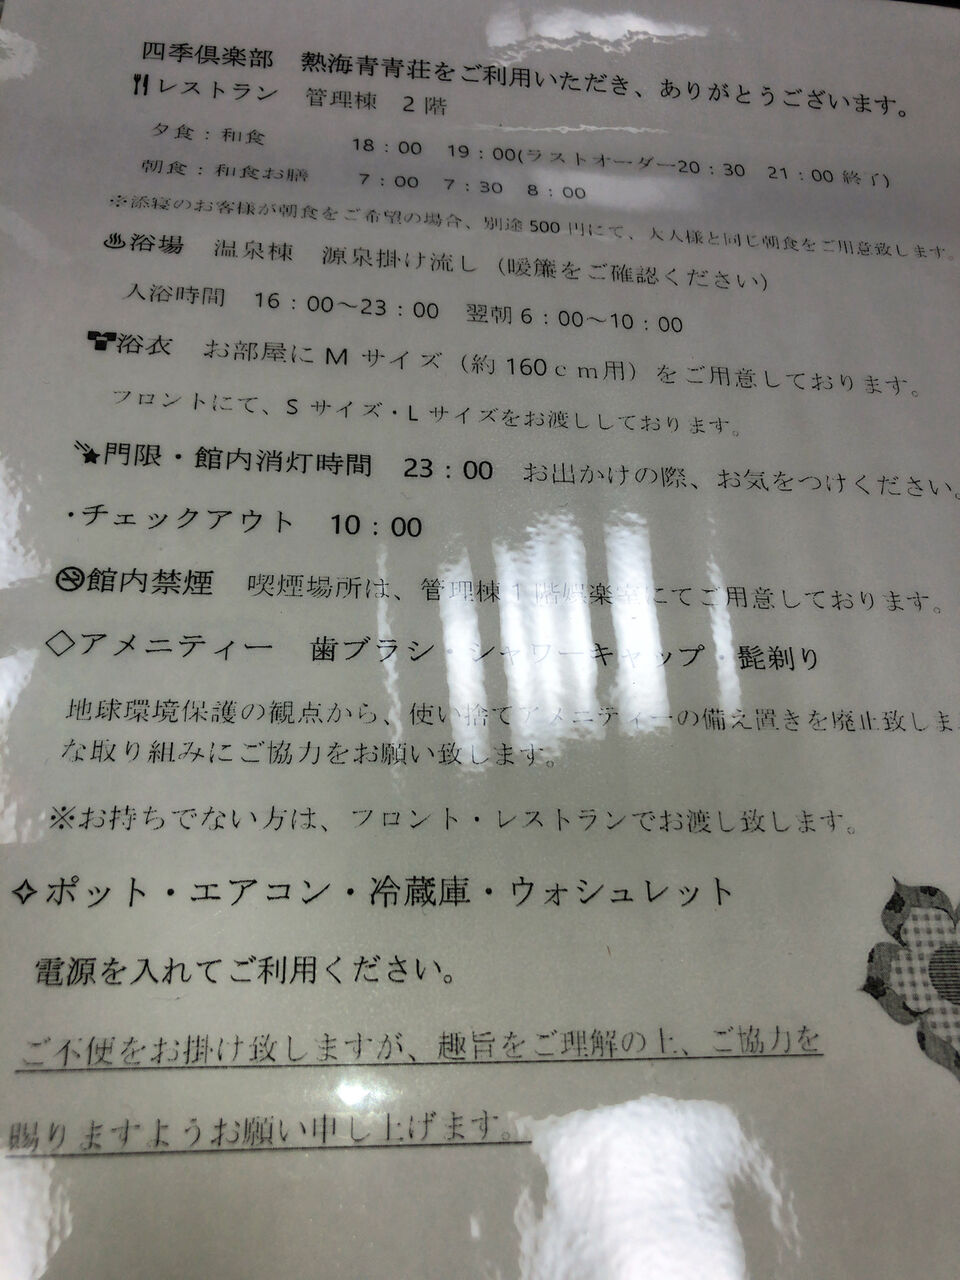 四季倶楽部　熱海青青荘をご利用いただき、ありがとうございます。
レストラン　管理棟　2階
夕食：和食　18：00　19：00(ラストオーダー20：30　21：00 終了)
朝食：和食お膳　7：00　7：30　8：00
※添寝のお客様が朝食をご希望の場合、別途500円にて、大人様と同じ朝食をご用意致します。
♨浴場　温泉棟　源泉掛け流し（暖簾をご確認ください）
入浴時間　16：00～23：00　翌朝6：00～10：00
浴衣　お部屋にMサイズ（約160cm用）をご用意しております。
フロントにて、Sサイズ・Lサイズをお渡ししております。
門限・館内消灯時間　23：00　お出かけの際、お気をつけください。
・チェックアウト　10：00
館内禁煙　喫煙場所は、管理棟1階娯楽室にてご用意しております。
◇アメニティー　歯ブラシ・シャワーキャップ・髭剃り
地球環境保護の観点から、使い捨てアメニティーの備え置きを廃止致しま
な取り組みにご協力をお願い致します。
※お持ちでない方は、フロント・レストランでお渡し致します。
✧ポット・エアコン・冷蔵庫・ウォシュレット
電源を入れてご利用ください。
ご不便をお掛け致しますが、趣旨をご理解の上、ご協力を
賜りますようお願い申し上げます。